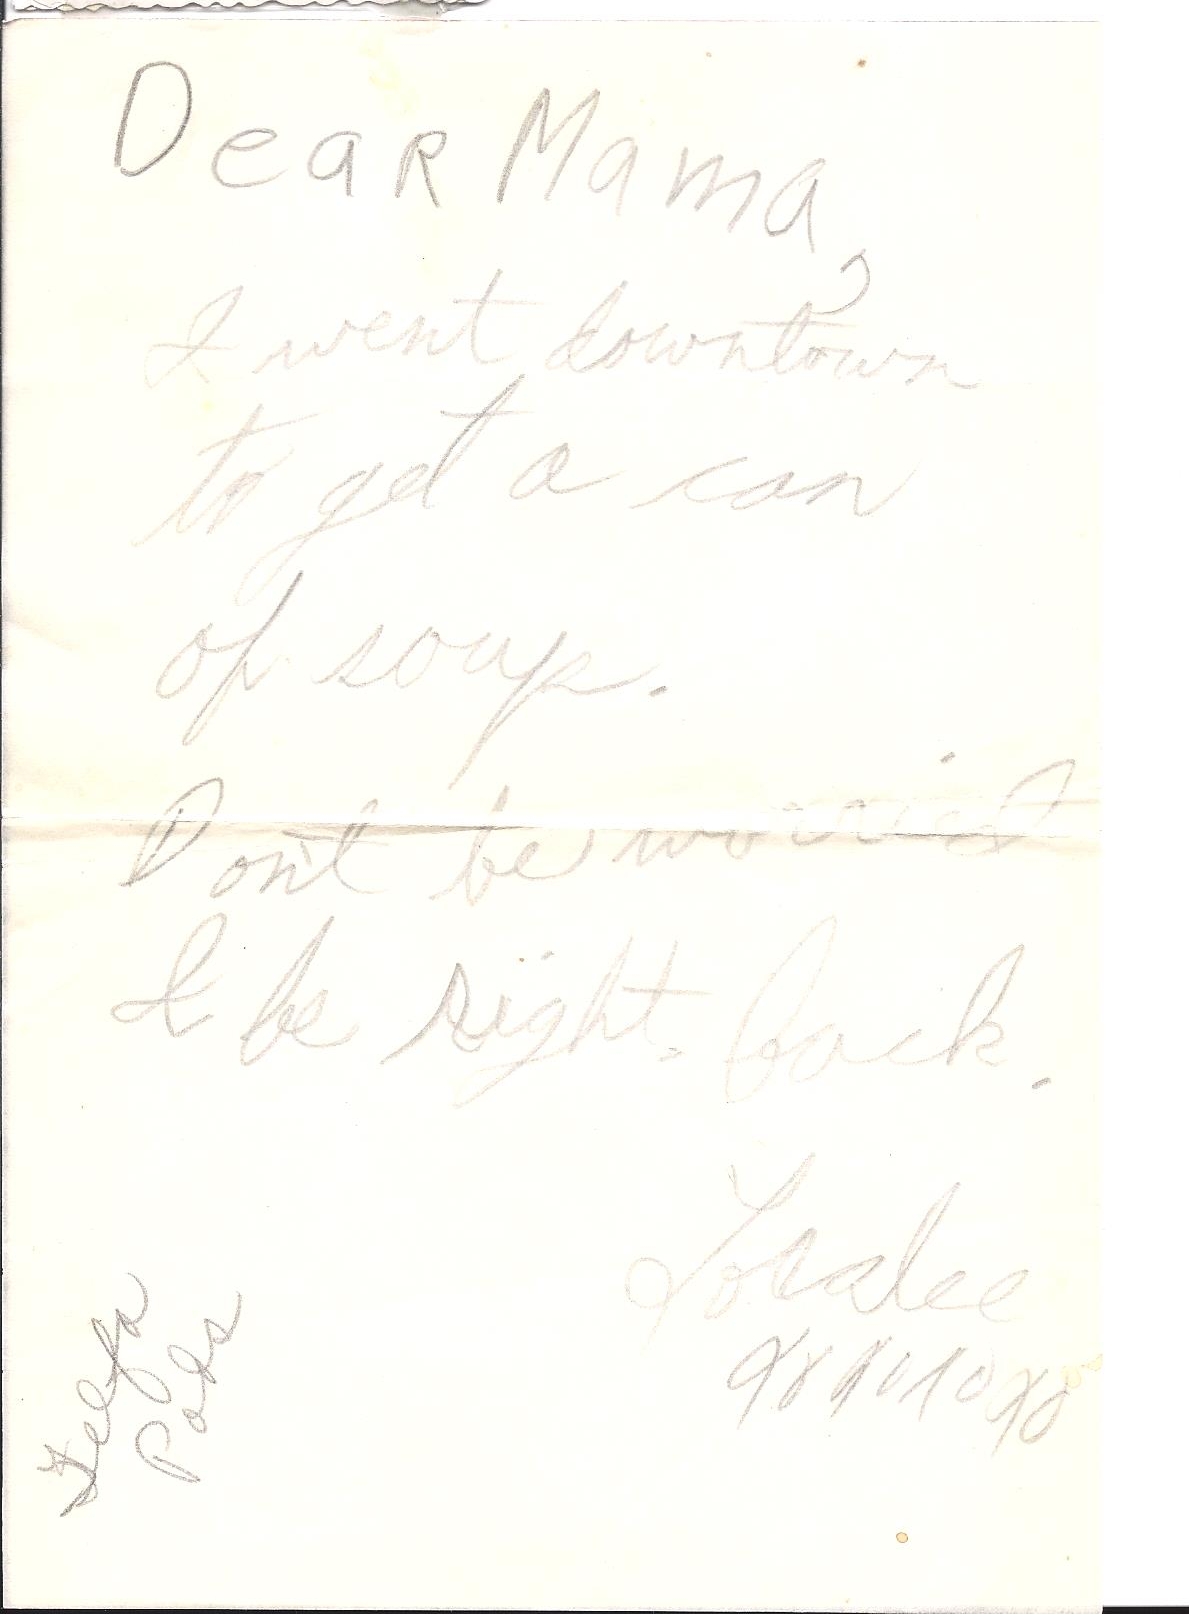 Dear Mama,
I went downtown
to get a can
of soup.
Don't be worried
I be right back.
Loralee
xoxoxoxo
Pads